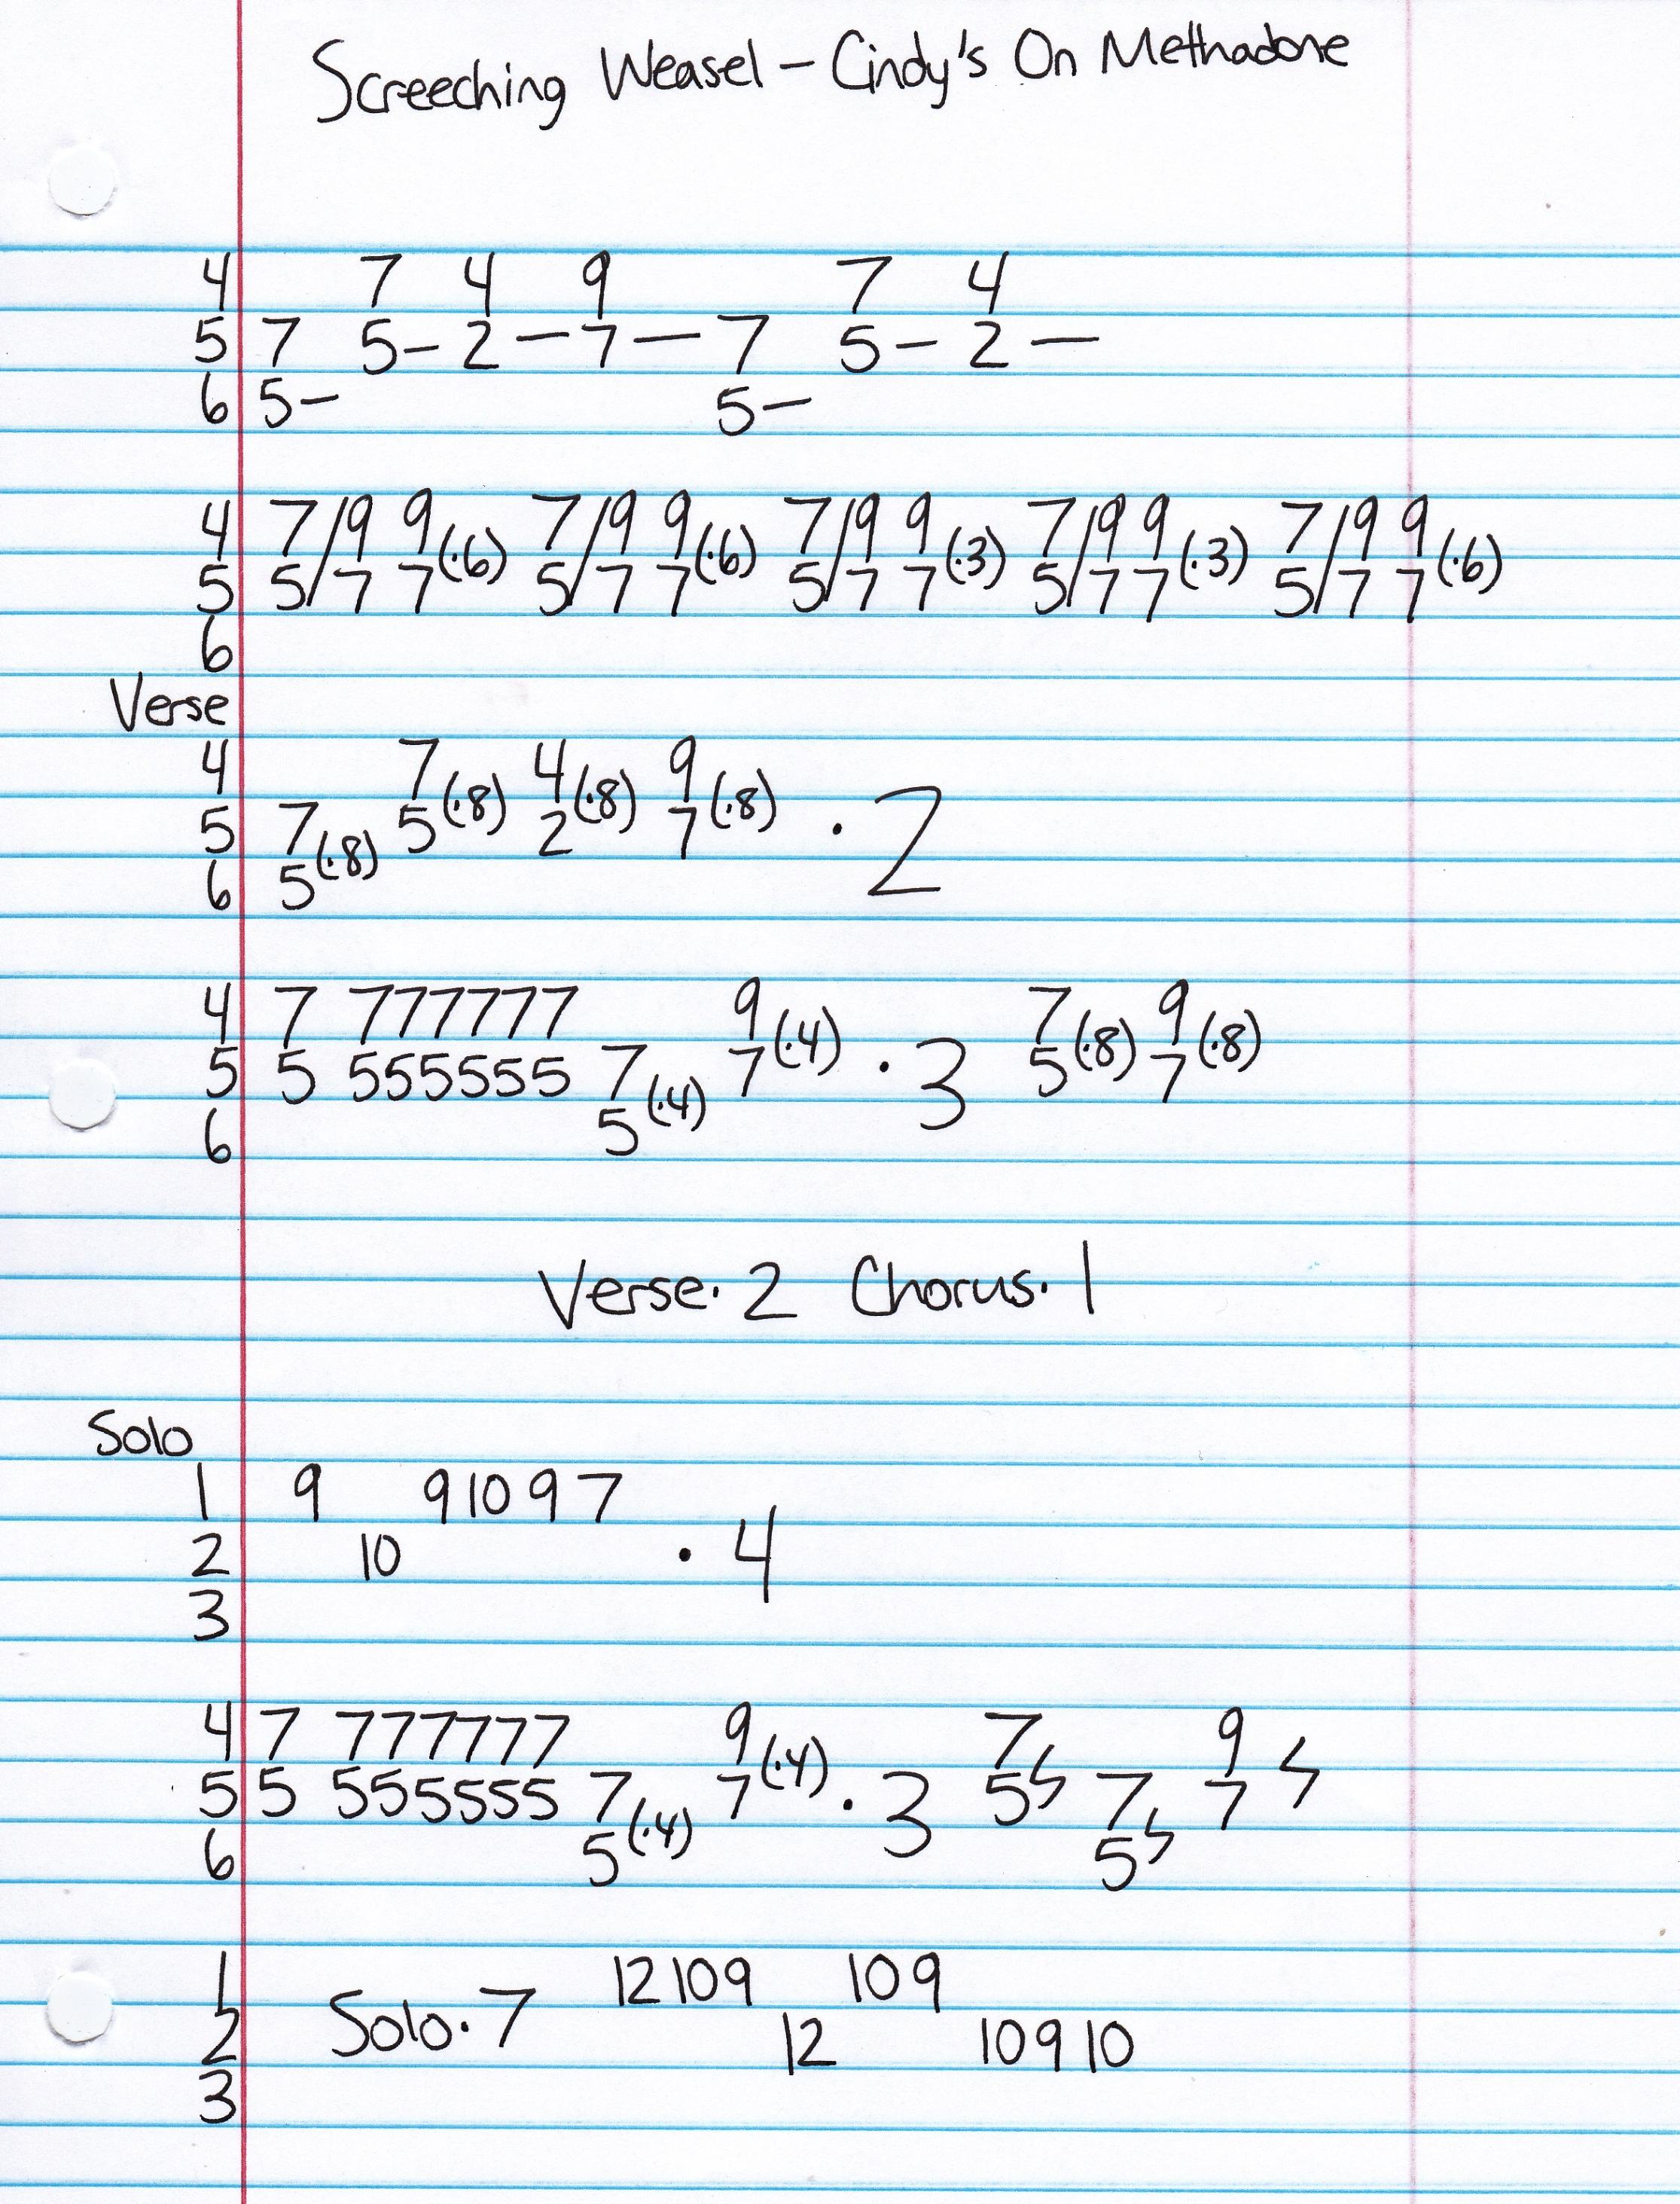 Screeching Weasel – Cindy's On Methadone
4 7 4 9 7 4
5 7 5– 2 – 7 – 7 5 – 2 –
6 5– 5–
4 7/9 9 7/9 9 7/9 9 7/9 9 7/9 9
5 5/7 7(·6) 5/7 7(·6) 5/7 7(·3) 5/7 7(·3) 5/7 7(·6)
6
Verse
4 7 4 9
5 7 5(·8) 2(·8) 7(·8) · 2
6 5(·8)
4 7 777777 9 7 9
5 5 555555 7 7(·4) · 3 5(·8) 7(·8)
6 5(·4)
Verse· 2 Chorus· 1
Solo
1 9 9 10 9 7
2 10 · 4
3
4 7 777777 9 7 9
5 5 555555 7 7(·4) · 3 5ϟ 7 7 ϟ
6 5(·4) 5ϟ
1 12 10 9 10 9
2 Solo· 7 12 10 9 10
3